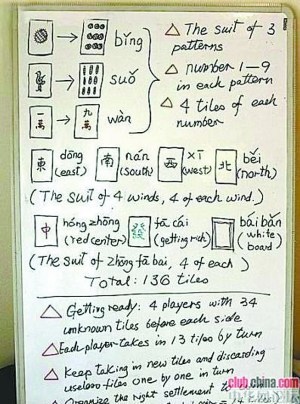 bǐng
△ The suit of 3 patterns
suǒ
△ number 1-9 in each pattern
一萬 → 九萬 wàn
△ 4 tiles of each number
東 dōng (east) 南 nán (south) 西 xī (west) 北 běi (north)
(The suit of 4 winds, 4 of each wind.)
中 hóng zhōng (red center) 發 fā cái (getting rich) bái bǎn (white board)
(The suit of zhōng fā bái, 4 of each)
Total: 136 tiles
△ Getting ready: 4 players with 34
unknown tiles before each side
△ Each player takes in 13 tiles by turn
△ Keep taking in new tiles and discarding
useless tiles one by one in turn
Organize the right settlement
club.china.com